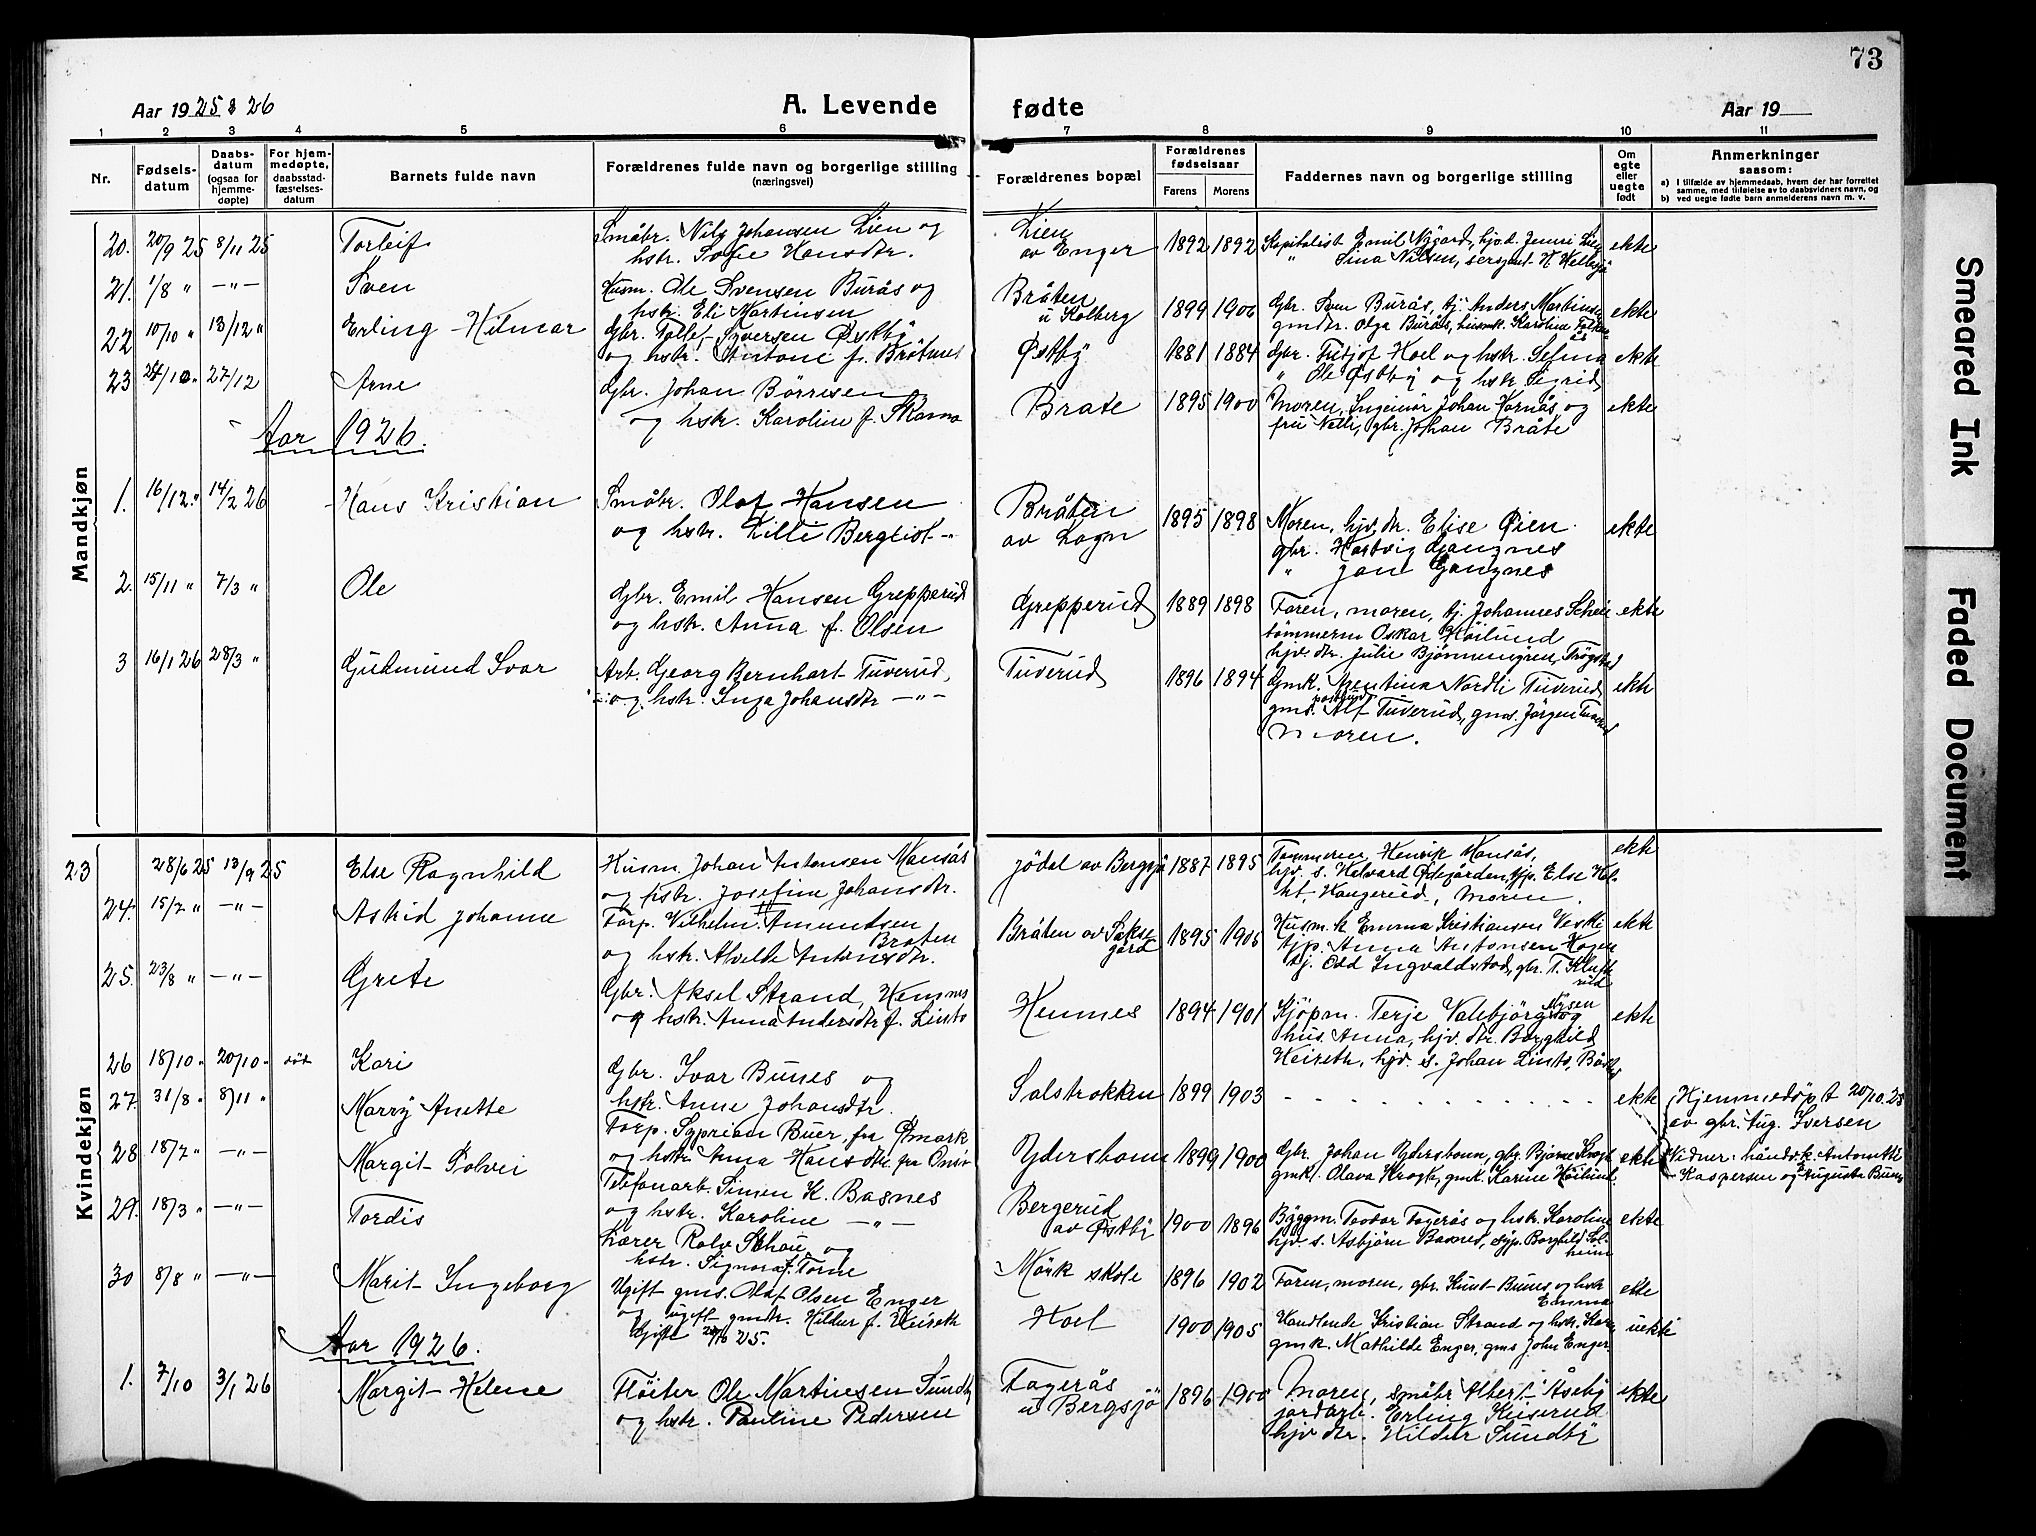 73
Aar 1925 & 26
A. Levende fødte
Aar 19
1 2 3 4 5 6 7 8 9 10 11
Nr.
Fødsels-
datum
Daabs-
datum
(ogsaa for
hjemme-
døpte)
For hjem-
medøpte,
daabsstad-
fæstelses-
datum
Barnets fulde navn
Forældrenes fulde navn og borgerlige stilling
(næringsvei)
Forældrenes bopæl
Forældrenes
fødselsaar
Farens Morens
Faddernes navn og borgerlige stilling
Om
egte
eller
uegte
født
Anmerkninger
saasom:
a) I tilfælde av hjemmedaab, hvem der har forrettet
samme, med tilføielse av to daabsvidners navn, og
b) ved uegte fødte barn anmelderens navn m. v.
Mandkjøn
20. 20/9 25 8/11 25 Torleif
Småbr. Nils Johansen Lien og
hstr. Sofie Hansdtr.
Lien
av Enger
1892 1892
Kapitalist Emil Nygård, hjv.d. Jenni Lien
" Sina Nilsen, sersjant H. Hellesjø
ekte
21. 1/8 " -"- Sven
Husm. Ole Svensen Burås og
hstr. Eli Martinsen
Bråten
u Kolberg
1899 1906
Gbr. Sven Burås, tj. Anders Martinsen
gmdtr. Olga Burås, husmk. Karoline
ekte
22 10/10 " 13/12 " Erling Hilmar
Gbr. Tolle Syversen Østby
og hstr. Antone f. Bråtnes
Østby
1881 1884
Gbr. Fritjof Hoel og hstr. Selma
" Ole Østby og hstr. Sigrid
ekte
23 24/10 " 27/12 Arne
Gbr. Johan Børresen
og hstr. Karoline f. Skarna
Bråte
1895 1900
Moren, Ingeniør Johan Hornås og
fru Nelli, gbr. Johan Bråte
ekte
Aar 1926.
1. 16/12 " 14/2 26 Hans Kristian
Småbr. Olaf Hansen
og hstr. Lilli Bergliot -"-
Bråten
av Logn
1895 1898
Moren, hjv.dtr. Elise Øien
gbr. Hartvig Gangnes
" Jon Gangnes
ekte
2. 15/11 " 7/3 " Ole
Gbr. Emil Hansen Grepperud
og hstr. Anna f. Olsen
Grepperud
1889 1898
Faren, moren, tj. Johannes Schie
tømmerm Oskar Höilund
hjv. dtr. Julie Bjønnengren, Trøgstad
ekte
3 16/1 26 28/3 " Gudmund Ivar
Arb. Georg Bernhart Tuverud,
og hstr. Inga Johansdtr -"-
Tuverud
1896 1894
Gmk. Mentina Nordli Tuverud
gms. Alf Tuverud, gms. Jørgen Tuverud
Moren.
ekte
Kvindekjøn
23 28/6 25 13/9 25 Else Ragnhild
Husm. Johan Antonsen Mansås
og hstr. Josefine Johansdtr.
Jödal av Bergsjø
1887 1895
Tømmerm. Henrik Mansås,
hjv. s. Halvard Ødegården, tjp. Else Hel-
Haugerud, Moren
ekte
24. 15/7 " -"- Astrid Johanne
Forp. Vilhelm Amundsen
Bråten
og hstr. Alvilde Antonsdtr.
Bråten av Sakse-
gård
1895 1905
Husm. k Emma Kristiansen Vestli
tjp. Anna Antonsen
tj. Odd Ingvaldstad, gbr. T. Kluft-
rud
ekte
25. 23/8 " -"- Grete
Gbr. Aksel Strand, Hemnes
og hstr. Anna Andersdtr f. Linsto
Hemnes
1894 1901
Kjöpm. Terje Valebjørg og
hus. Anna, hjv. dtr. Borghild
Heireth, hjv. s. Johan Linsto,
ekte
26 18/10 " 20/10 " Kari
Gbr. Ivar Bunes og
hstr. Anne Johansdtr.
Solstrokken
1899 1903
- - - - - - - - - -
ekte
Hjemmedøpt 20/10.25
av gbr. Aug. Iversen
Vidner: håndsk. Antonette
Kaspersen og Auguste Bunes
27. 31/8 " 8/11 " Marry Anette
Forp. Syprian Buer, fra Ømark
og hstr. Anna Hansdtr. fra Onsø
Ydersbonn
1899 1900
Gbr. Johan Ydersbonn, gbr. Bjarne Krogh
gmk. Olava Krogh, gmk. Karine Höilund.
ekte
28 18/7 " -"- Margit Solvei
Telefonarb. Simen K. Basnes
og hstr. Karoline -"-
Bergerud
av Østby
1900 1896
Byggm. Torvor Fagerås og hstr. Karoline
hjv. s. Asbjørn Basnes, syp. Borghild Sol-
heim
ekte
29. 18/3 " -"- Tordis
Lærer Rolv Schou og
hstr. Signora f. Torne
Mörk skole
1896 1902
Faren, moren, gbr. Knut Bunes og hstr
Emma
ekte
30 8/8 " -"- Marit Ingeborg
Ugift gms. Olaf Olsen Enger
og ugift gmdtr. Hildur f. Heireth
Gift 25.
Hoel
1900 1905
Handlende Kristian Strand og hstr. Kari
gmk. Mathilde Enger, gms John Enger
uekte
Aar 1926.
1. 7/10 3/1 26 Margit Helene
Flöiter Ole Martinsen Sundby
og hstr. Pauline Pedersen
Fagerås
u Bergsjö
1896 1900
Moren, småbr Albert Åseby
jordarb. Erling Kuserud
hjv dtr. Hildur Sundby
ekte
Smeared Ink
Faded Document